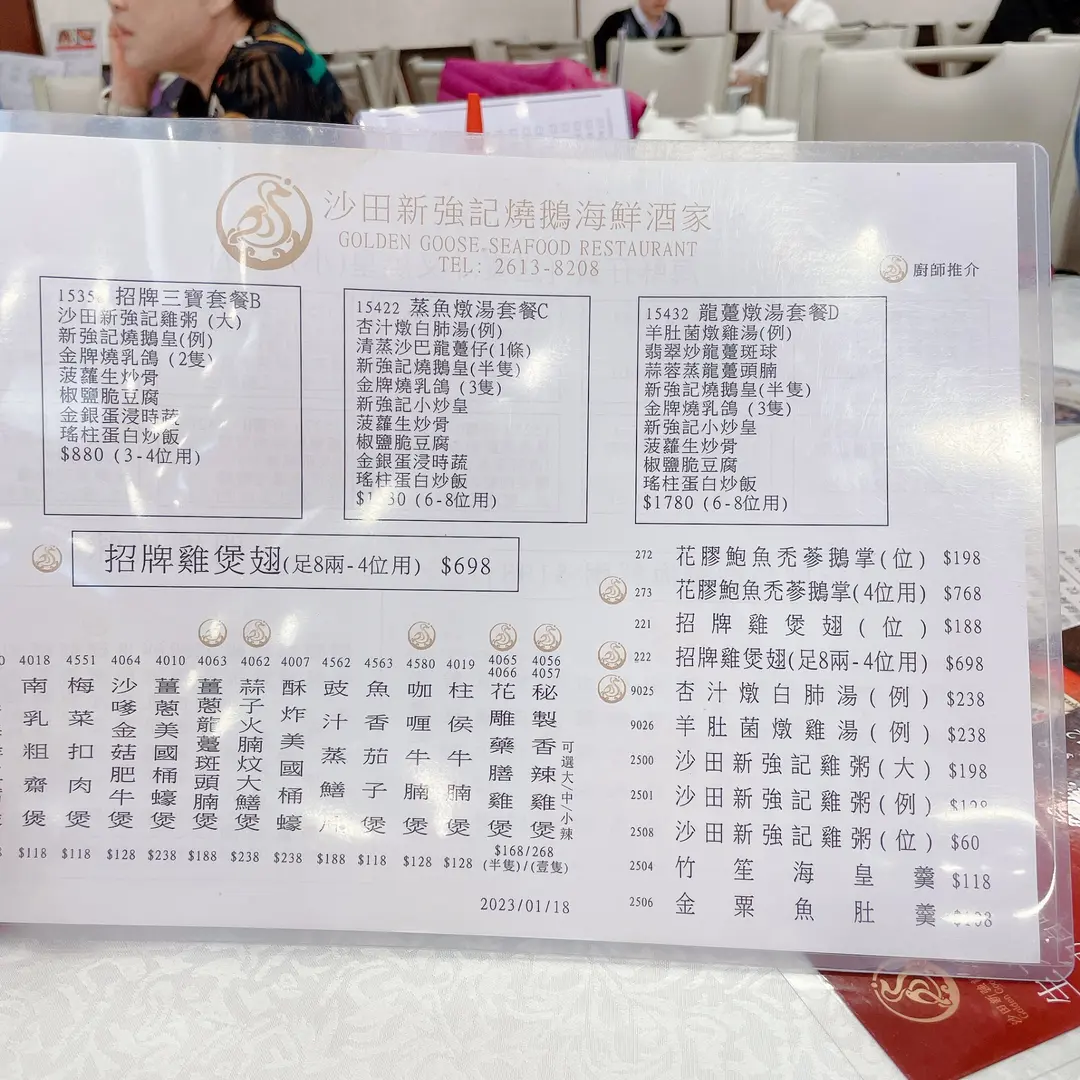 沙田新強記燒鵝海鮮酒家
GOLDEN GOOSE SEAFOOD RESTAURANT
TEL: 2613-8208
廚師推介
招牌三寶套餐B
沙田新強記雞粥 (大)
新強記燒鵝皇(例)
金牌燒乳鴿 (2隻)
菠蘿生炒骨
椒鹽脆豆腐
金銀蛋浸時蔬
瑤柱蛋白炒飯
$880 (3-4位用)
15422 蒸魚燉湯套餐C
杏汁燉白肺湯(例)
清蒸沙巴龍躉仔(1條)
新強記燒鵝皇(半隻)
金牌燒乳鴿 (3隻)
新強記小炒皇
菠蘿生炒骨
椒鹽脆豆腐
金銀蛋浸時蔬
瑤柱蛋白炒飯
(6-8位用)
15432 龍躉燉湯套餐D
羊肚菌燉雞湯(例)
翡翠炒龍躉斑球
蒜蓉蒸龍躉頭腩
新強記燒鵝皇(半隻)
金牌燒乳鴿 (3隻)
新強記小炒皇
菠蘿生炒骨
椒鹽脆豆腐
瑤柱蛋白炒飯
$1780 (6-8位用)
招牌雞煲翅(足8兩-4位用) $698
272 花膠鮑魚禿蔘鵝掌(位) $198
273 花膠鮑魚禿蔘鵝掌(4位用) $768
221 招牌雞煲翅(位) $188
222 招牌雞煲翅(足8兩-4位用) $698
9025 杏汁燉白肺湯(例) $238
9026 羊肚菌燉雞湯(例) $238
2500 沙田新強記雞粥(大) $198
2501 沙田新強記雞粥(例)
2508 沙田新強記雞粥(位) $60
2504 竹笙海皇羹 $118
2506 金粟魚肚羹
4056 4057 秘製香辣雞煲 可選大/中/小辣
4065 4066 花雕藥膳雞煲
$168/268
(半隻)/(壹隻)
4019 柱侯牛腩煲 $128
4580 咖喱牛腩煲 $128
4563 魚香茄子煲 $118
4562 豉汁蒸鱔 $188
4007 酥炸美國桶蠔 $238
4062 蒜子火腩炆大鱔煲 $238
4063 薑蔥龍躉斑頭腩煲 $188
4010 薑蔥美國桶蠔煲 $238
4064 沙嗲金菇肥牛煲 $128
4551 梅菜扣肉煲 $118
4018 南乳粗齋煲 $118
2023/01/18